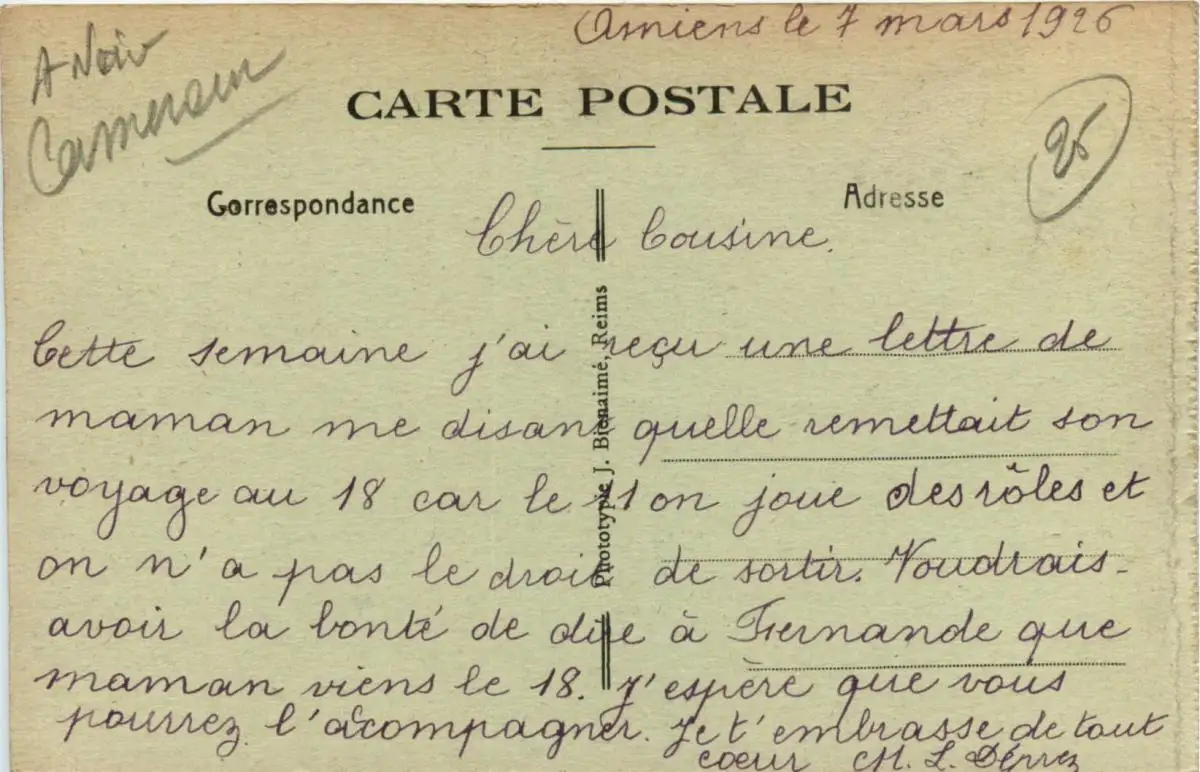 Amiens le 7 mars 1926
A Noir
Cameroun
CARTE POSTALE
25
Correspondance
Adresse
Chère Cousine.
Cette semaine j'ai reçu une lettre de
maman me disant quelle remettait son
voyage au 18 car le 11 on joue des rôles et
on n'a pas le droit de sortir. Voudrais-
avoir la bonté de dire à Fernande que
maman viens le 18. J'espère que vous
pourrez l'acompagner. Je t'embrasse de tout
cœur M. L. Déprez
Phototypie J. Bienaimé, Reims